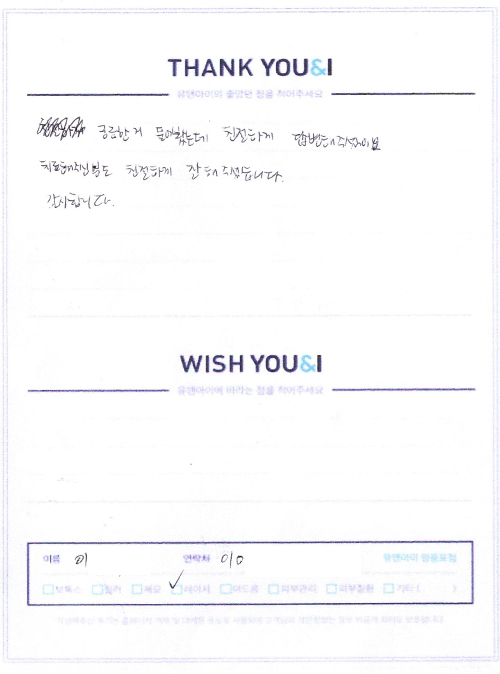 THANK YOU&I
유앤아이의 좋았던 점을 적어주세요
궁금한거 물어봤는데 친절하게 답변해주셨어요
치료해주신 분도 친절하게 잘 해 주셨습니다.
감사합니다.
WISH YOU&I
유앤아이에 바라는 점을 적어주세요
이름 이 연락처 010 유앤아이
보톡스 필러 제모 레이저 여드름 피부관리 피부질환 기타 ( )